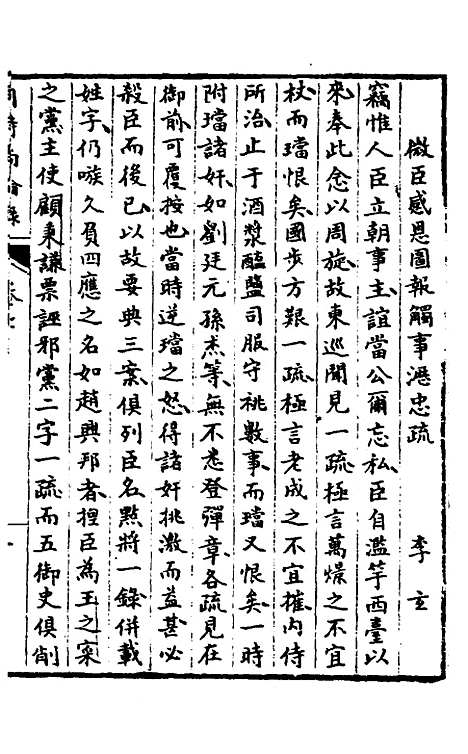 微臣感恩圖報觸事瀝忠疏　李玄
竊惟人臣立朝事主誼當公爾忘私臣自濫竽西臺以
來奉此念以周旋故東巡聞見一疏極言萬燝之不宜
杖而璫恨矣國步方艱一疏極言老成之不宜摧内侍
所治止于酒漿醢鹽司服守祧數事而璫又恨矣一時
附璫諸奸如劉廷元孫杰等無不悉登彈章各疏見在
御前可覆按也當時逆璫之怒得諸奸挑激而益甚必
殺臣而後已以故要典三案俱列臣名㸃將一錄併載
姓字仍嗾久負四應之名如趙興邦者捏臣為王之寀
之黨主使顧秉謙票誣邪黨二字一疏而五御史俱削